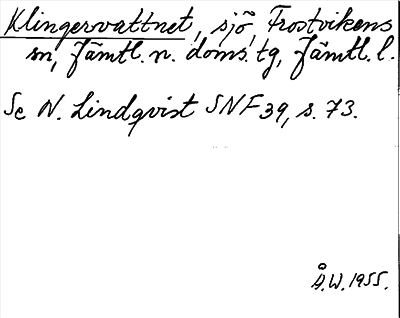 Klingervattnet, sjö, Frostvikens
sn, Jämtl. n. doms. tg, Jämtl. l.
Se N. Lindqvist SNF 39, s. 73.
Å.W. 1955.